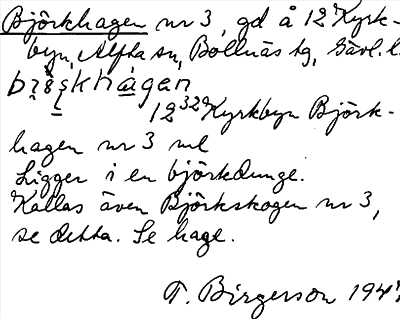 Björkhagen nr 3, gd å 12 Kyrk-
byn, Alfta sn, Bollnäs tg, Gävl. l.
12³² Kyrkbyn Björk-
hagen nr 3 ml
Ligger i en björkdunge.
Kallas även Björkskogen nr 3,
se detta. Se hage.
T. Birgerson 194